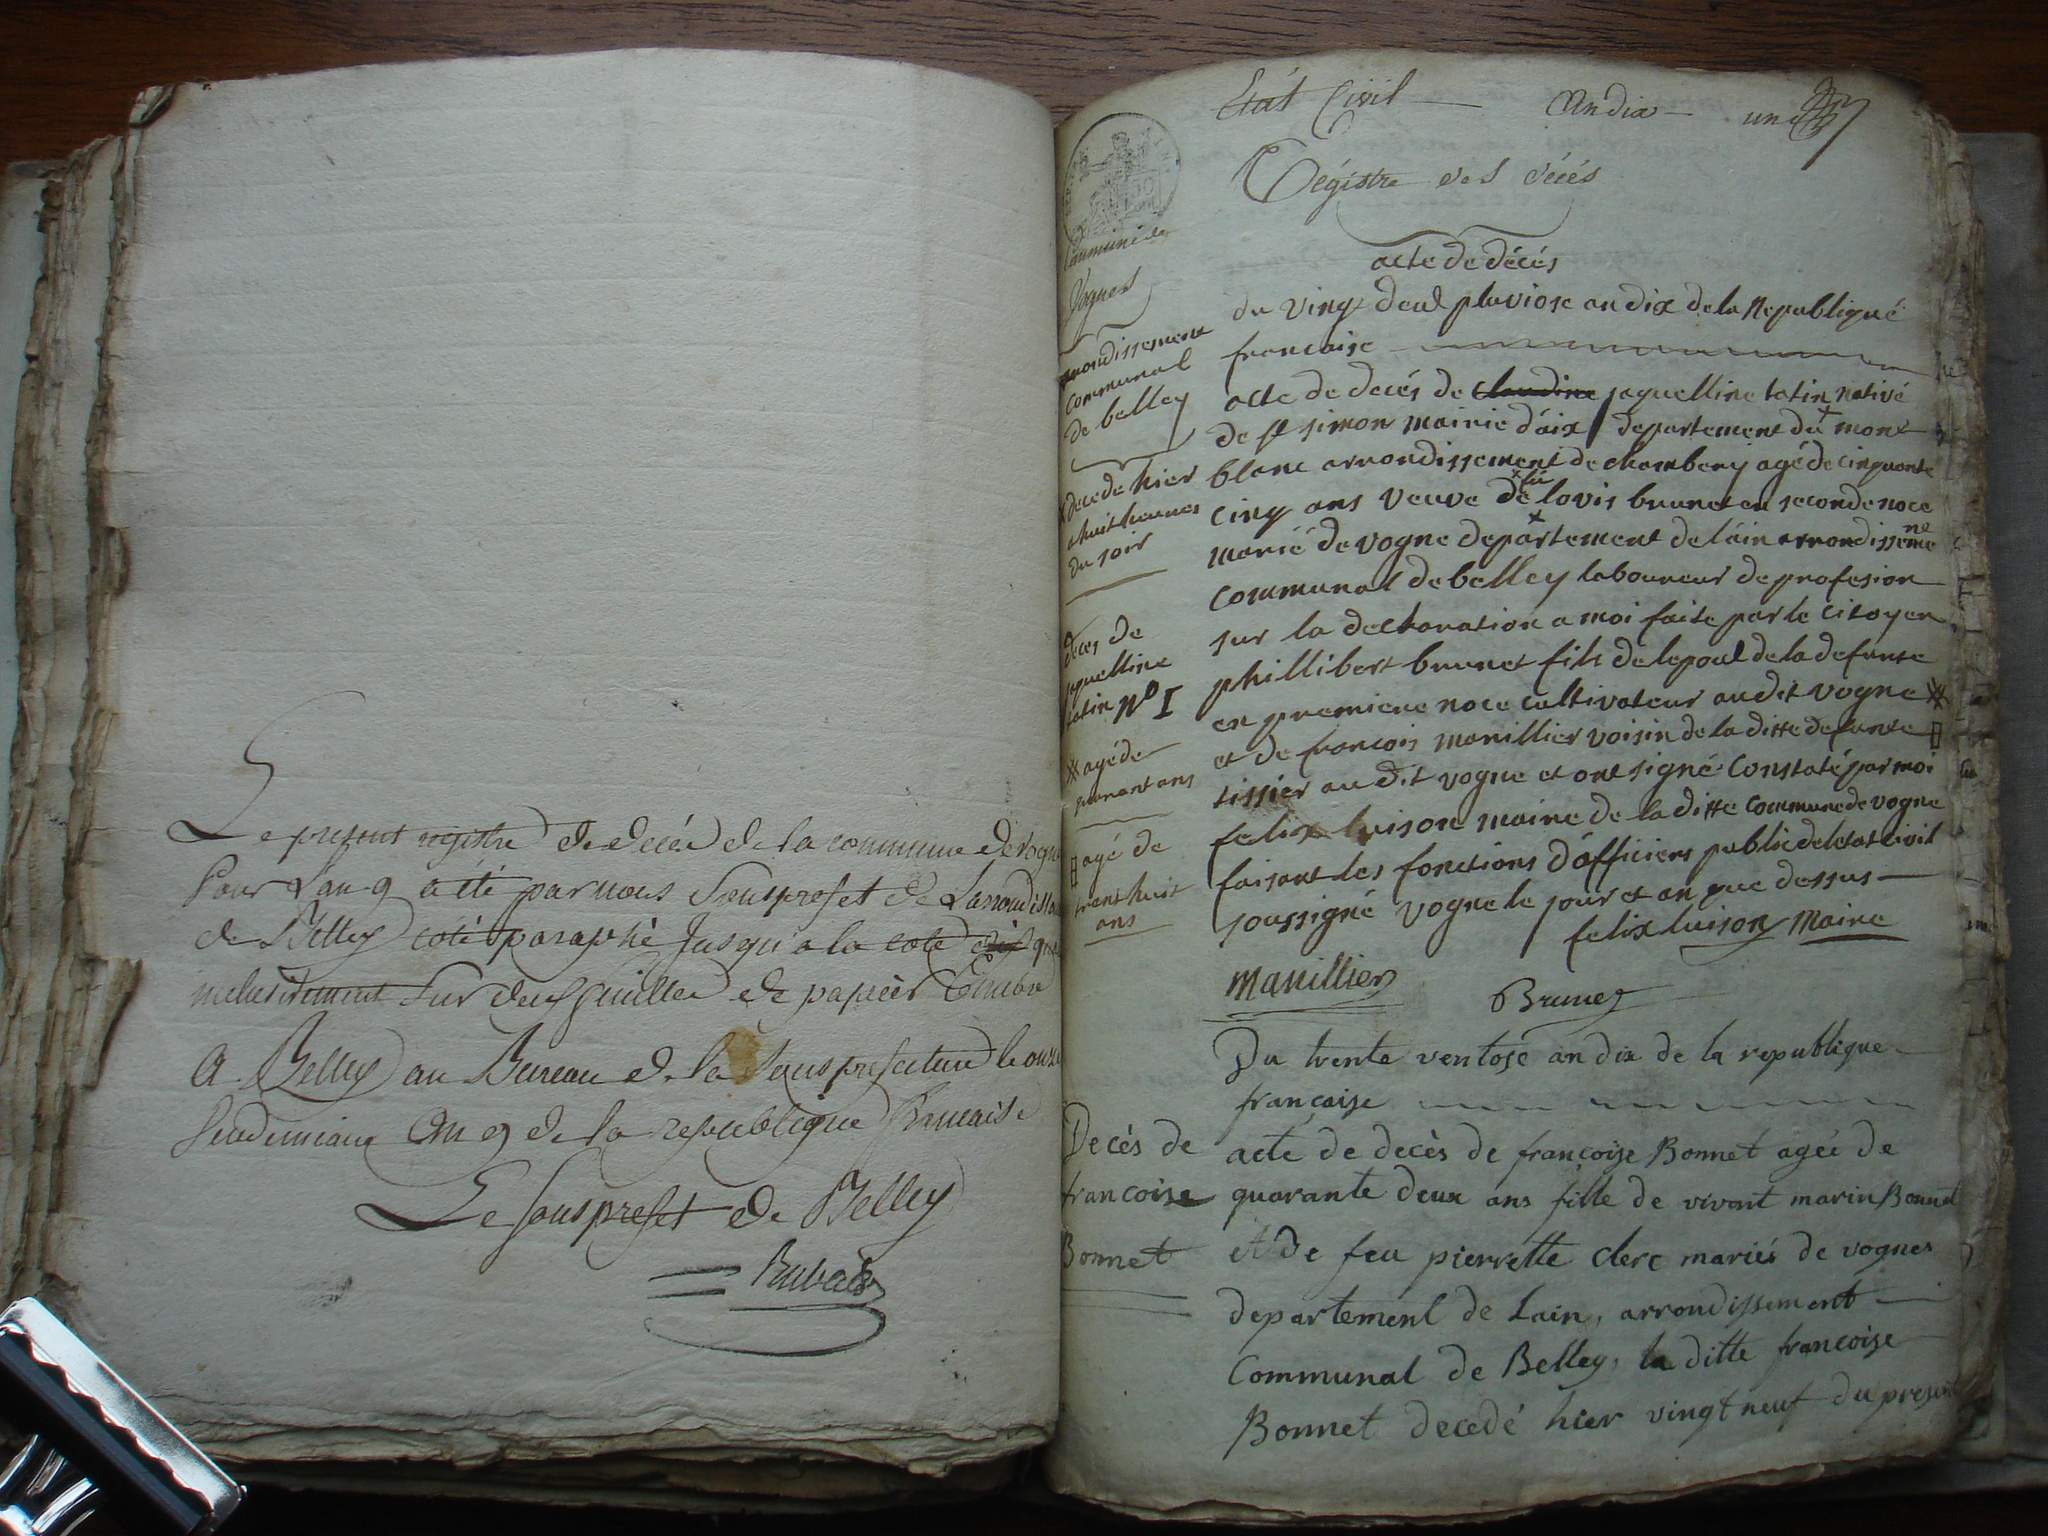 Le present registre de décés de la commune de vogne
Pour Lan 9 a été par nous Souspréfet de Larrondisse
de Belley coté paraphé Jusqu'a la cote
sur deux feuilles de papier timbré
A Belley au Bureau de la Souspréfecture le onze
Vendemiaire an 9 de la republique francaise
Le souspréfet de Belley
Etat Civil Andix un
Régistre des décés
Commune de
Vognes
arrondissement
communal
de belley
decede hier
a huit heures
du soir
deces de
jaquelline
tatin No I
agé de
quarant ans
agé de
trent huit
ans
acte de décés
du vingt deux pluviose an dix de la Republique
francaise
acte de decés de claudine jaquelline tatin native
de st simon mairie d'aix departement du mont
blanc arrondissement de chambery agé de cinquante
cinq ans veuve de feu lovis brunet en seconde noce
marié de vogne departement de l'ain arrondisseme
communal de belley laboureur de profesion
sur la declaration a moi faite par le citoyen
phillibert brunet fils de lepoux de la defunte
en premiere noce cultivateur audit vogne
et de francois manillier voisin de la ditte defunte
tissier au dit vogne et ont signé constaté par moi
felix luison maire de la ditte commune de vogne
faisant les fonctions d'officiers public de letat civil
soussigné vogne le jour et an que dessus
felix luison maire
Manillier Brunet
Du trente ventose an dix de la republique
francaise
Decès de
francoise
Bonnet
acte de decès de francoise Bonnet agée de
quarante deux ans fille de vivant marin Bonnet
et de feu pierrette clerc mariés de vognes
departement de Lain, arrondissement
Communal de Belley, la ditte francoise
Bonnet decedé hier vingt neuf du present